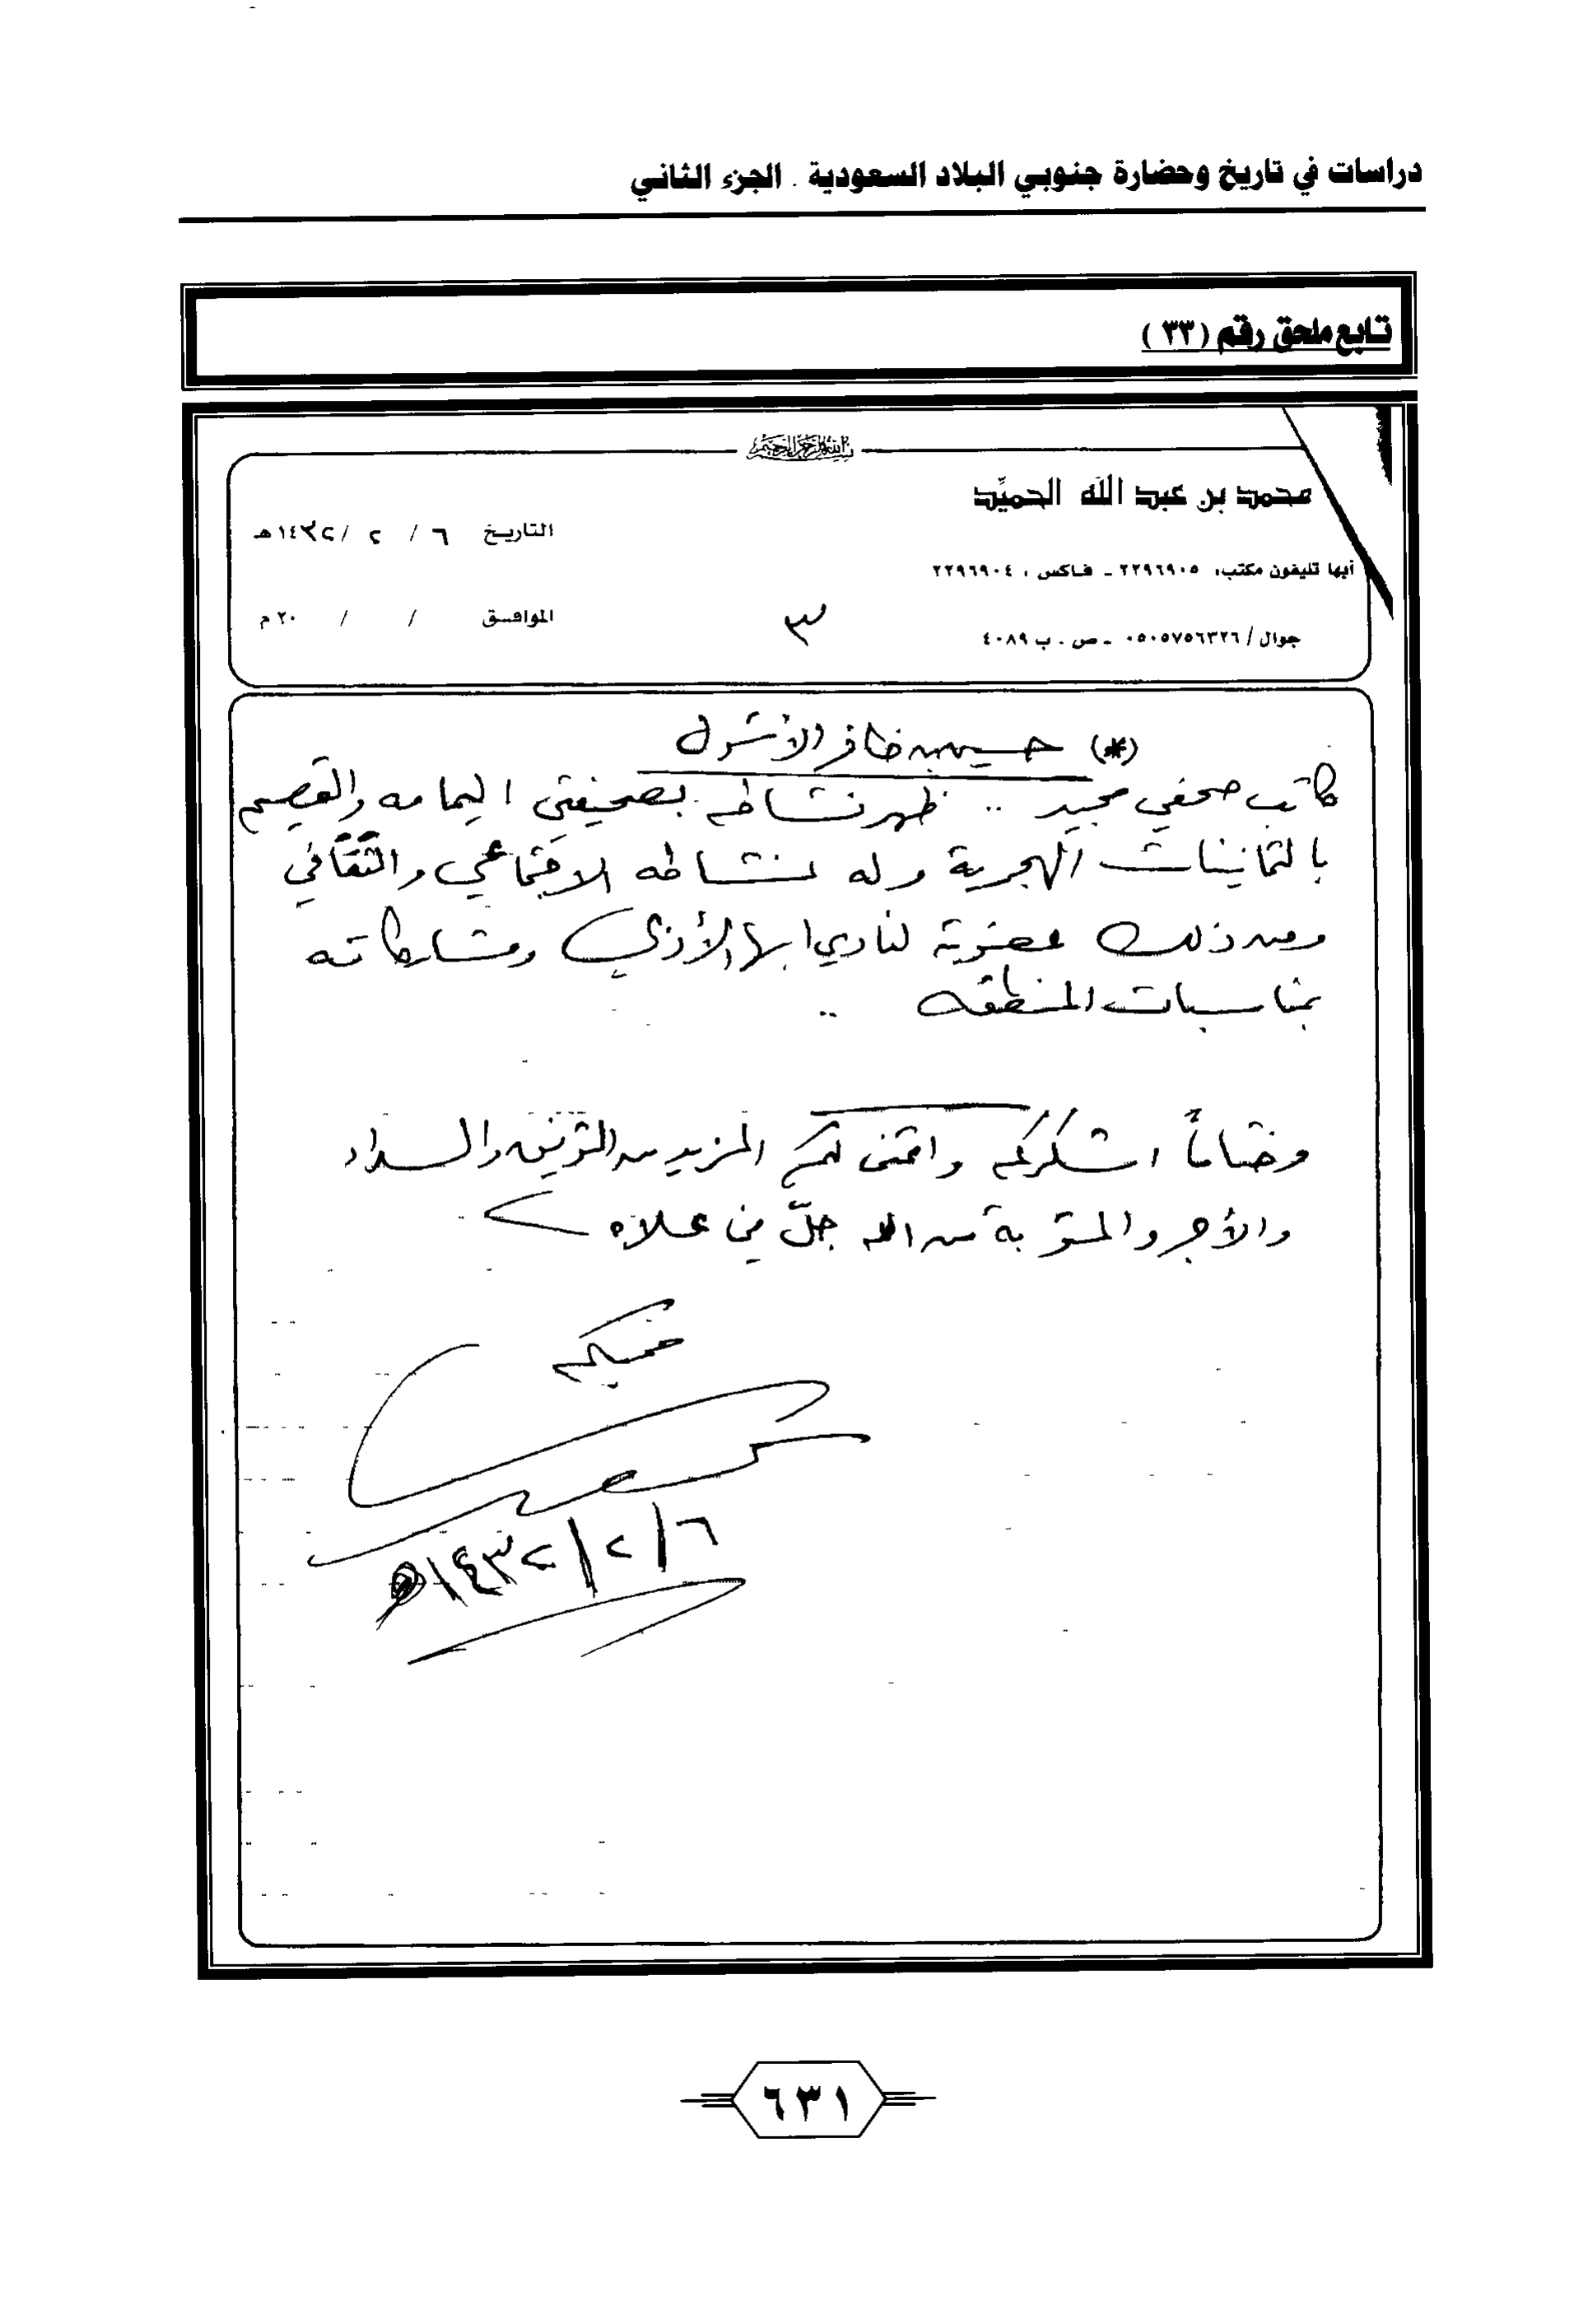 دراسات في تاريخ وحضارة جنوبي البلاد السعودية . الجزء الثاني
تابع ملحق رقم (٣٣)
بسم الله الرحمن الرحيم
محمد بن عبد الله الحميِّد
التاريخ ٦ / ٢ / ١٤٣٢هـ
أبها تليفون مكتب: ٢٢٩٦٩٠٥ - فاكس: ٢٢٩٦٩٠٤
الموافق / / ٢٠م
٣
جوال / ٠٥٠٥٧٥٦٣٢٦ - ص . ب ٤٠٨٩
(*) حسين بن ظافر الأشول
كاتب صحفي مجيد .. ظهر نشاطه بصحيفتي اليمامه والقصيم
بالثمانينات الهجرية وله نشاطه الاجتماعي والثقافي
ومن ذلك عضوية لنادي ابها الأدبي ومشاركاته
بمناسبات المنطقه ..
وختاماً اشكركم واتمنى لكم المزيد من التوفيق والسداد
والأجر والمثوبة من الله جلّ في علاه
محبكم
٦/٢/١٤٣٢هـ
٦٣١